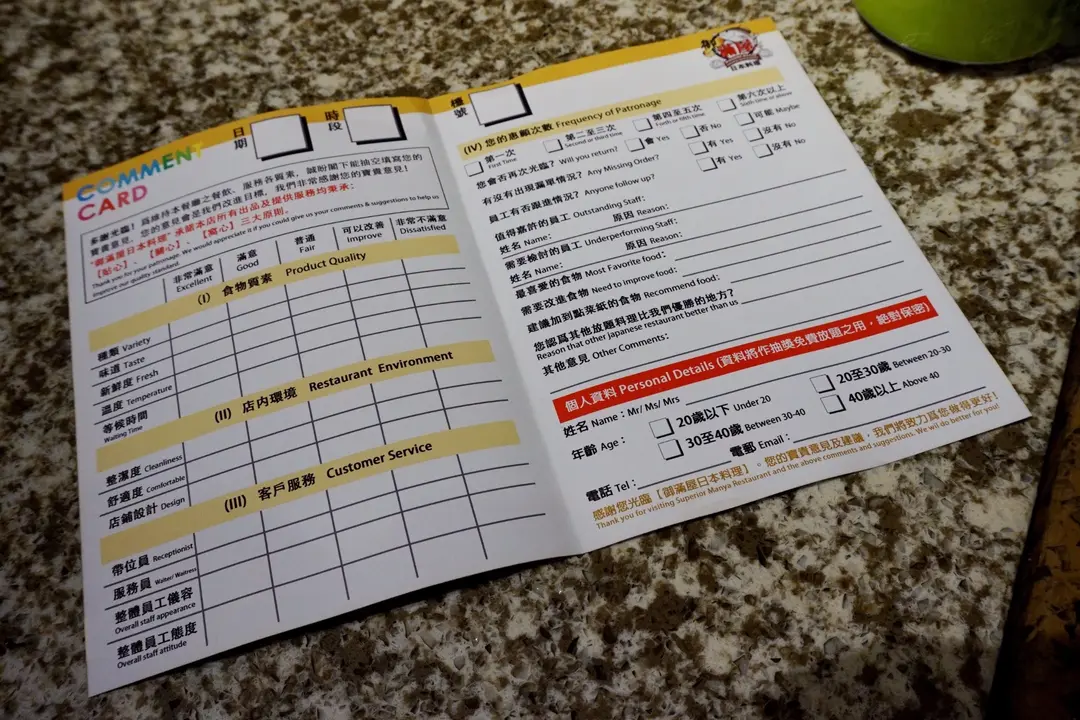 COMMENT
CARD
日期
時段
多謝光臨！爲維持本餐廳之餐飲、服務各質素，誠盼閣下能抽空填寫您的
寶貴意見，您的意見會是我們改進目標，我們非常感謝您的寶貴意見！
"御滿屋日本料理"承賭本店所有出品及提供服務均秉承：
【貼心】、【關心】、【窩心】三大原則。
Thank you for your patronage. We would appreciate it if you could give us your comments & suggestions to help us
improve our quality standard.
非常滿意 滿意 普通 可以改善 非常不滿意
Excellent Good Fair Improve Dissatisfied
(I) 食物質素 Product Quality
種類 Variety
味道 Taste
新鮮度 Fresh
溫度 Temperature
等候時間
Waiting Time
(II) 店内環境 Restaurant Environment
整潔度 Cleanliness
舒適度 Comfortable
店鋪設計 Design
(III) 客戶服務 Customer Service
帶位員 Receptionist
服務員 Waiter/ Waitress
整體員工儀容
Overall staff appearance
整體員工態度
Overall staff attitude
檯號
日本料理
(IV) 您的惠顧次數 Frequency of Patronage
第一次 第二至三次 第四至五次 第六次以上
First Time Second or third time Forth or fifth time Sixth time or above
您會否再次光臨？ Will you return? 會 Yes 否 No 可能 Maybe
有沒有出現漏單情況？ Any Missing Order? 有 Yes 沒有 No
員工有否跟進情況？ Anyone follow up? 有 Yes 沒有 No
值得嘉許的員工 Outstanding Staff:
姓名 Name: 原因 Reason:
需要檢討的員工 Underperforming Staff:
姓名 Name: 原因 Reason:
最喜愛的食物 Most Favorite food:
需要改進食物 Need to improve food:
建議加到點菜紙的食物 Recommend food:
您認爲其他放題料理比我們優勝的地方？
Reason that other japanese restaurant better than us
其他意見 Other Comments:
個人資料 Personal Details (資料將作抽獎免費放題之用，絶對保密)
姓名 Name：Mr/ Ms/ Mrs
年齡 Age： 20歲以下 Under 20 20至30歲 Between 20-30
30至40歲 Between 30-40 40歲以上 Above 40
電話 Tel： 電郵 Email：
感謝您光臨【御滿屋日本料理】。您的寶貴意見及建議，我們將致力爲您做得更好！
Thank you for visiting Superior Manya Restaurant and the above comments and suggestions. We will do better for you!